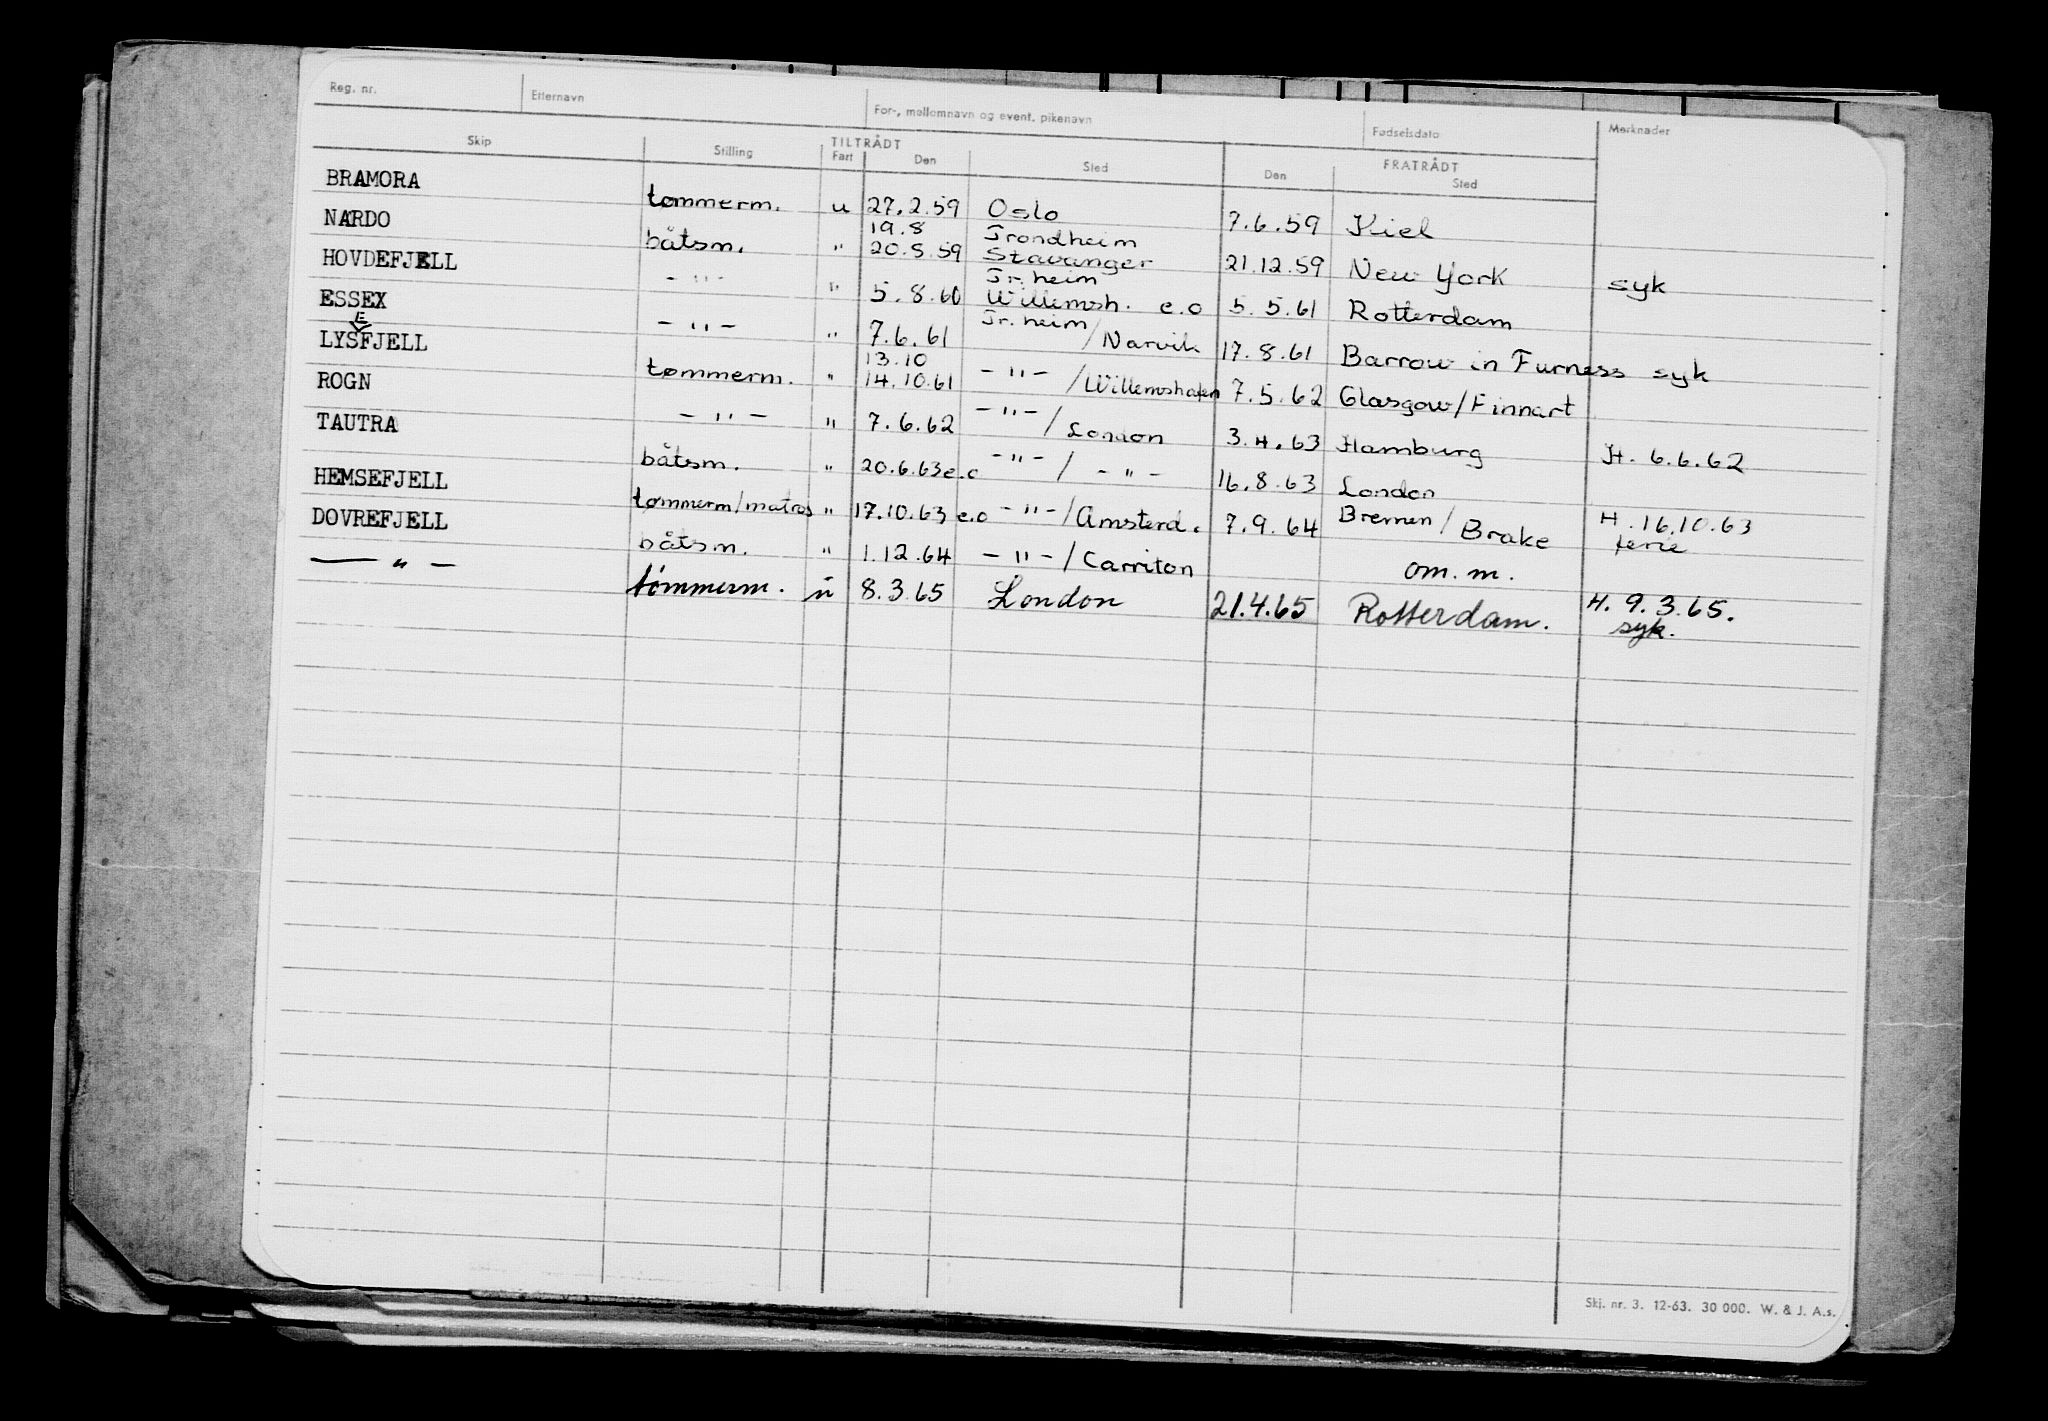 Reg. nr. Etternavn For-, mellomnavn og event. pikenavn Fødselsdato Merknader
Skip Stilling TILTRÅDT FRATRÅDT
Fart Den Sted Den Sted
BRAMORA tømmerm. u 27.2.59 Oslo 7.6.59 Kiel
19.8 Trondheim
NARDO båtsm. " 20.8.59 Stavanger 21.12.59 New York syk
Tr.heim
HOVDEFJELL - " - " 5.8.60 Willemsh. e.o 5.5.61 Rotterdam
ESSEX - " - " 7.6.61 Tr.heim/Narvik 17.8.61 Barrow in Furness syk
E
13.10
LYSFJELL tømmerm. " 14.10.61 - " - /Willemshafen 7.5.62 Glasgow/Finnart
ROGN - " - " 7.6.62 - " - / London 3.4.63 Hamburg H. 6.6.62
TAUTRA båtsm. " 20.6.63 e.o - " - / - " - 16.8.63 London
HEMSEFJELL tømmerm/matros " 17.10.63 e.o - " - /Amsterd. 7.9.64 Bremen/Brake H. 16.10.63
ferie
DOVREFJELL båtsm. " 1.12.64 - " - /Carriton om.m.
— " — tømmerm. u 8.3.65 London 21.4.65 Rotterdam. H. 9.3.65.
syk.
Skj. nr. 3. 12-63. 30 000. W. & J. A.s.